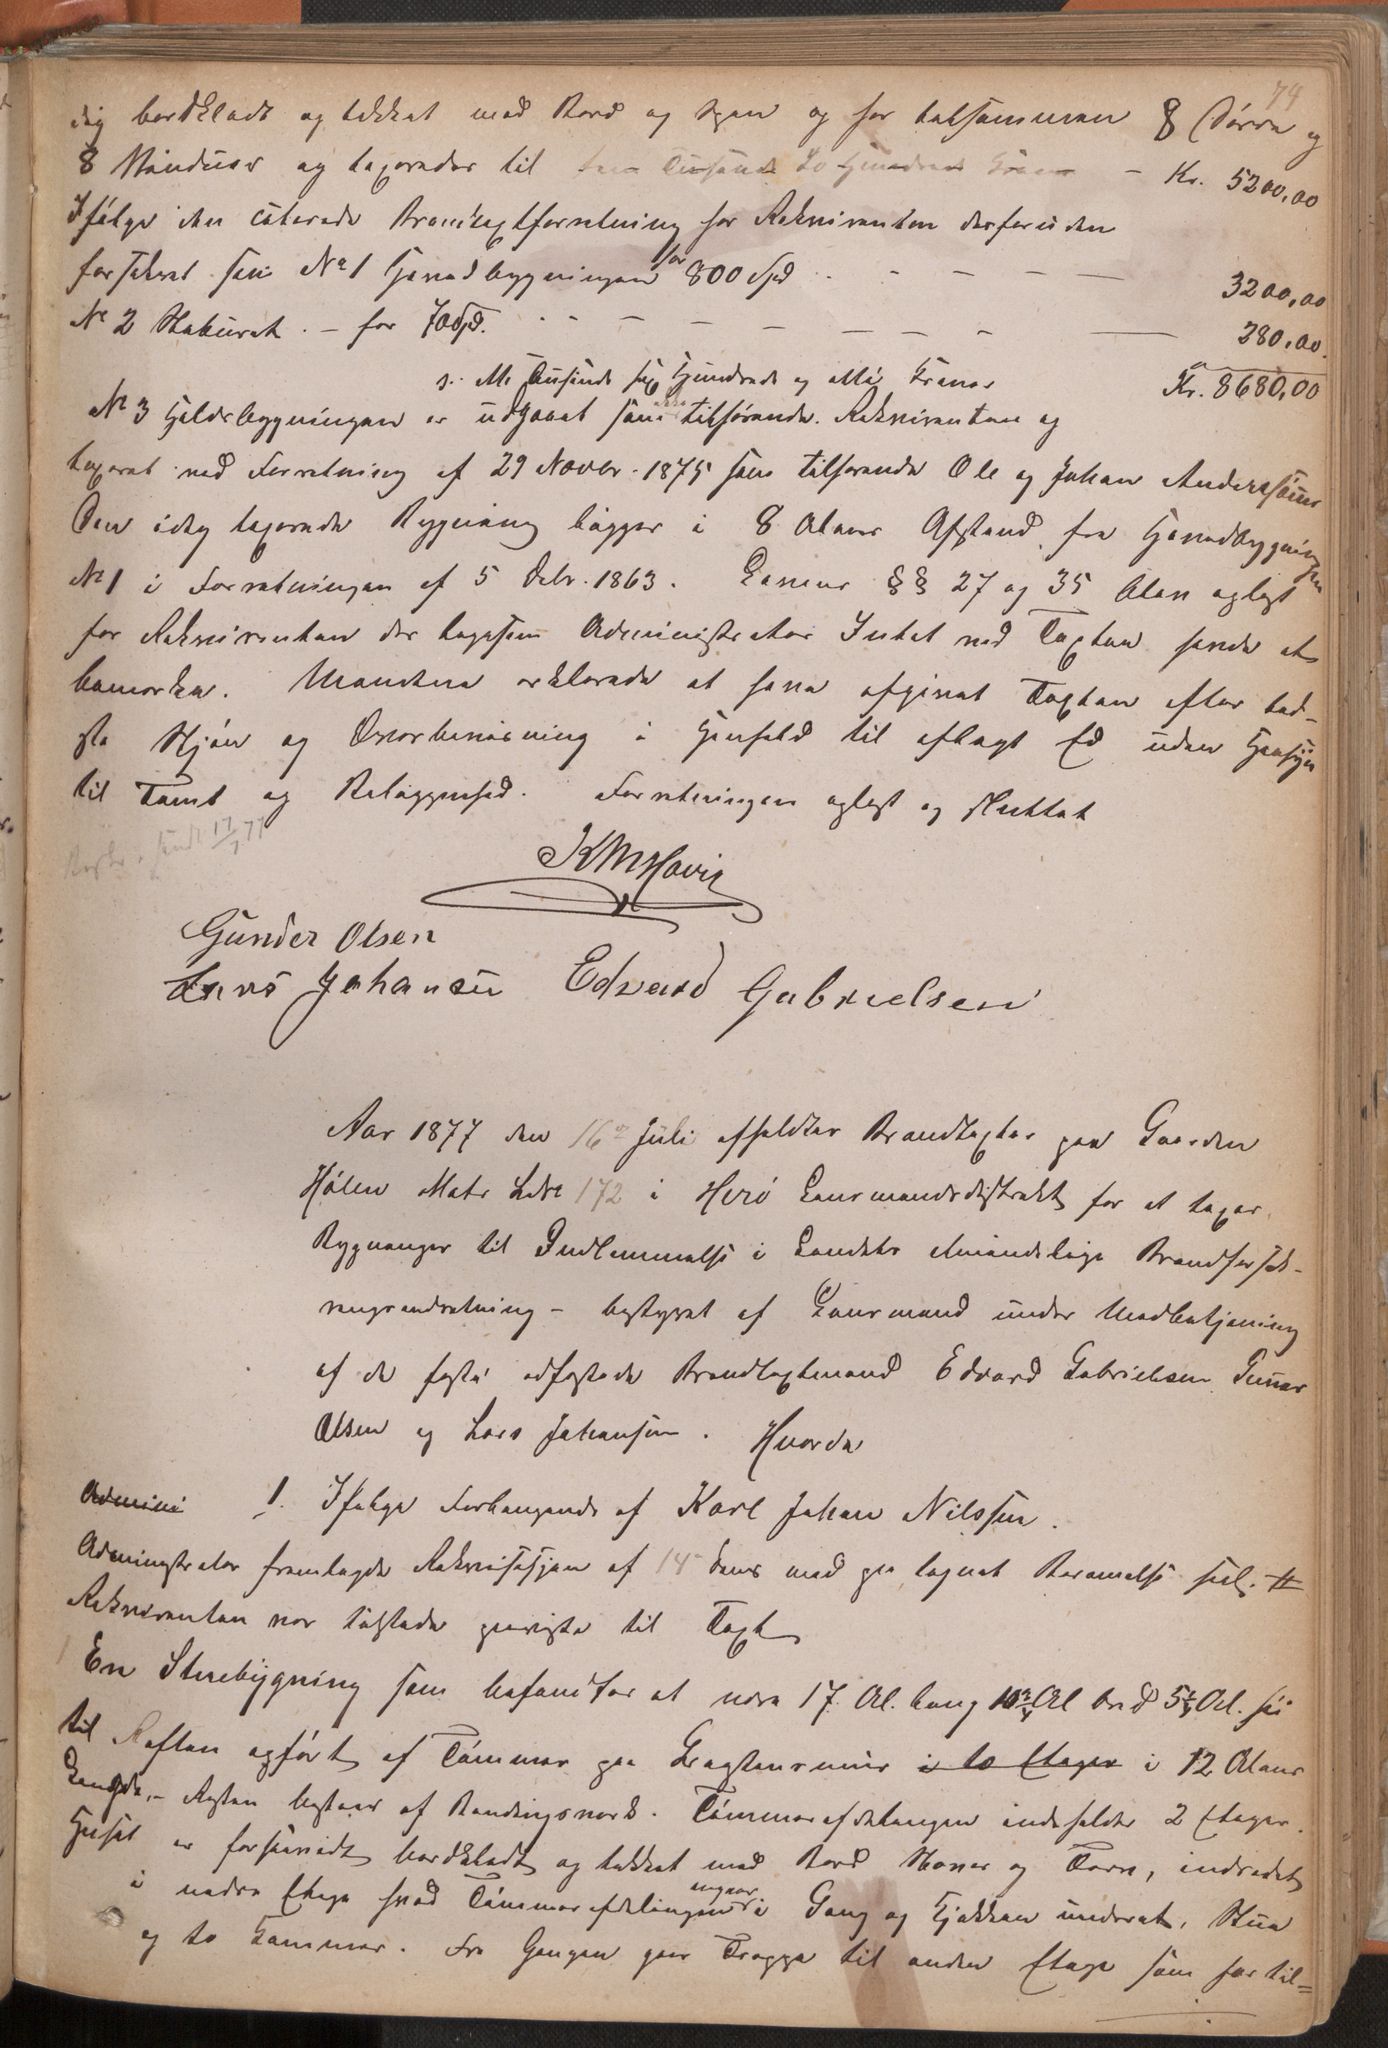 74
dig bordklædt og tækket med Bord og Spon og har tilsammen 8 Dörre og
8 Vinduer og taxeredes til fem Tusinde to Hundrede Kroner – Kr. 5200,00
Ifölge den citerede Branntaxtforretning har Rekvirenten desforuden
forsikret som No 1 Hovedbygningen for 800 Spd – – – – 3200,00
No 2 Staburet – for 70 Spd. – – – – – – 280,00.
s. otte Tusinde sex Hundrede og otti Kroner Kr. 8680,00
No 3 Kjelderbygningen er udgaaet som ikke tilhörende Rekvirenten og
taxeret ved Forretning af 29 Novbr. 1875 som tilhörende Ole og Johan Anderssönner
Den idag taxerede Bygning ligger i 8 Alens Afstand fra Hovedbygningen
No 1 i Forretningen af 5 Debr. 1863. Lovens §§ 27 og 35 blev oplæst
for Rekvirenten der ligesom Administrator Intet ved Taxten havde at
bemærke. Mændene erklærede at have afgivet Taxten efter bed-
ste Skjön og Overbevisning i Henhold til aflagt Ed uden Hensyn
til Tomt og Beliggenhed. Forretningen oplæst og sluttet
17/7 77
KMHavig
Gunder Olsen
Lars Johansen Edvard Gabrielsen
Aar 1877 den 16de Juli afholdtes Brandtaxter paa Gaarden
Hölen Matr LNo 172 i Herö Lensmandsdistrikt for at taxer
Bygninger til Indlemmelse i Landets Almindelige Brandforsik-
ringsindretning – bestyret af Lensmand under Medbetjening
af de faste edfæstede Brandtaxtmænd Edvard Gabrielsen Gunder
Olsen og Lars Johansen. Hvorda
Admini 1. Ifölge Forlangende af Karl Johan Nilssen.
Administrator fremlagde Rekvisisjon af 14 dens med paa tegnet Berammelse
Rekvirenten var tilstede paaviste til Taxt
1 En Stuebygning som befandtes at være 17 Al. lang Al bred Al. höi
til Raften opfört af Tömmer paa Graastensmur i to Etager i 12 Alens
Længde, – Resten bestaar af Bindingsverk. Tömmerafdelingen indeholder 2 Etager.
Huset er forsvaret bordklædt og tækket med Bord Næver og Torv, indredet
i nedre Etage hvad Tömmerafdelingen angaar i Gang og Kjökken underet, Stue
og to Kammer. Fra Gangen gaar Trappe til anden Etage som har til=